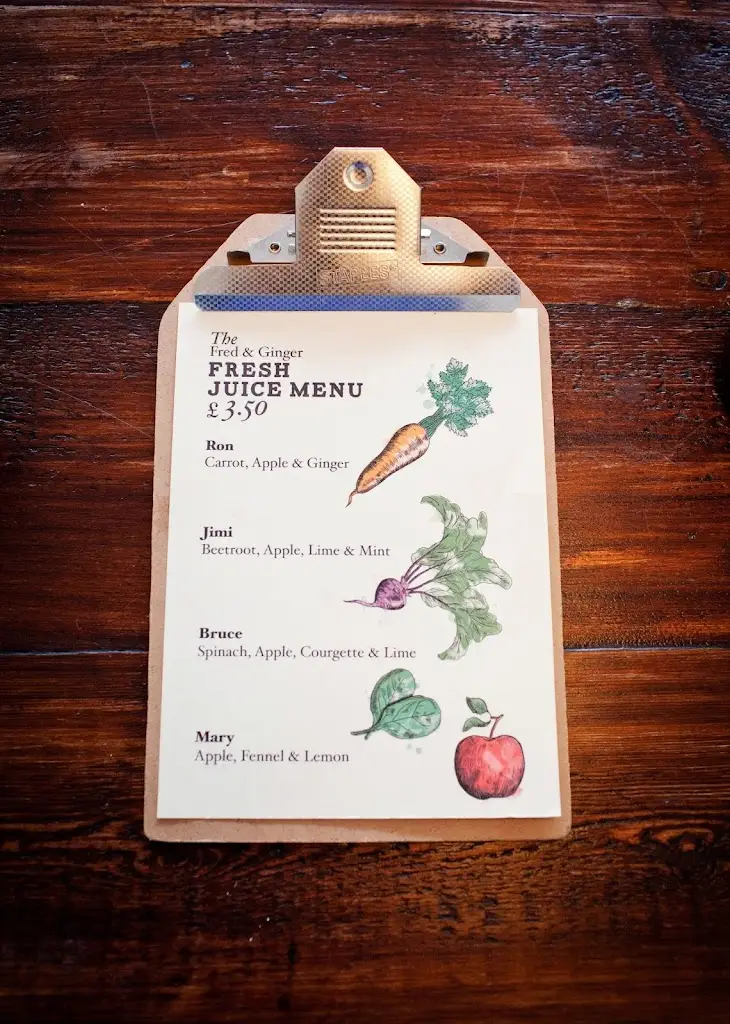 STAPLES
The
Fred & Ginger
FRESH
JUICE MENU
£3.50
Ron
Carrot, Apple & Ginger
Jimi
Beetroot, Apple, Lime & Mint
Bruce
Spinach, Apple, Courgette & Lime
Mary
Apple, Fennel & Lemon